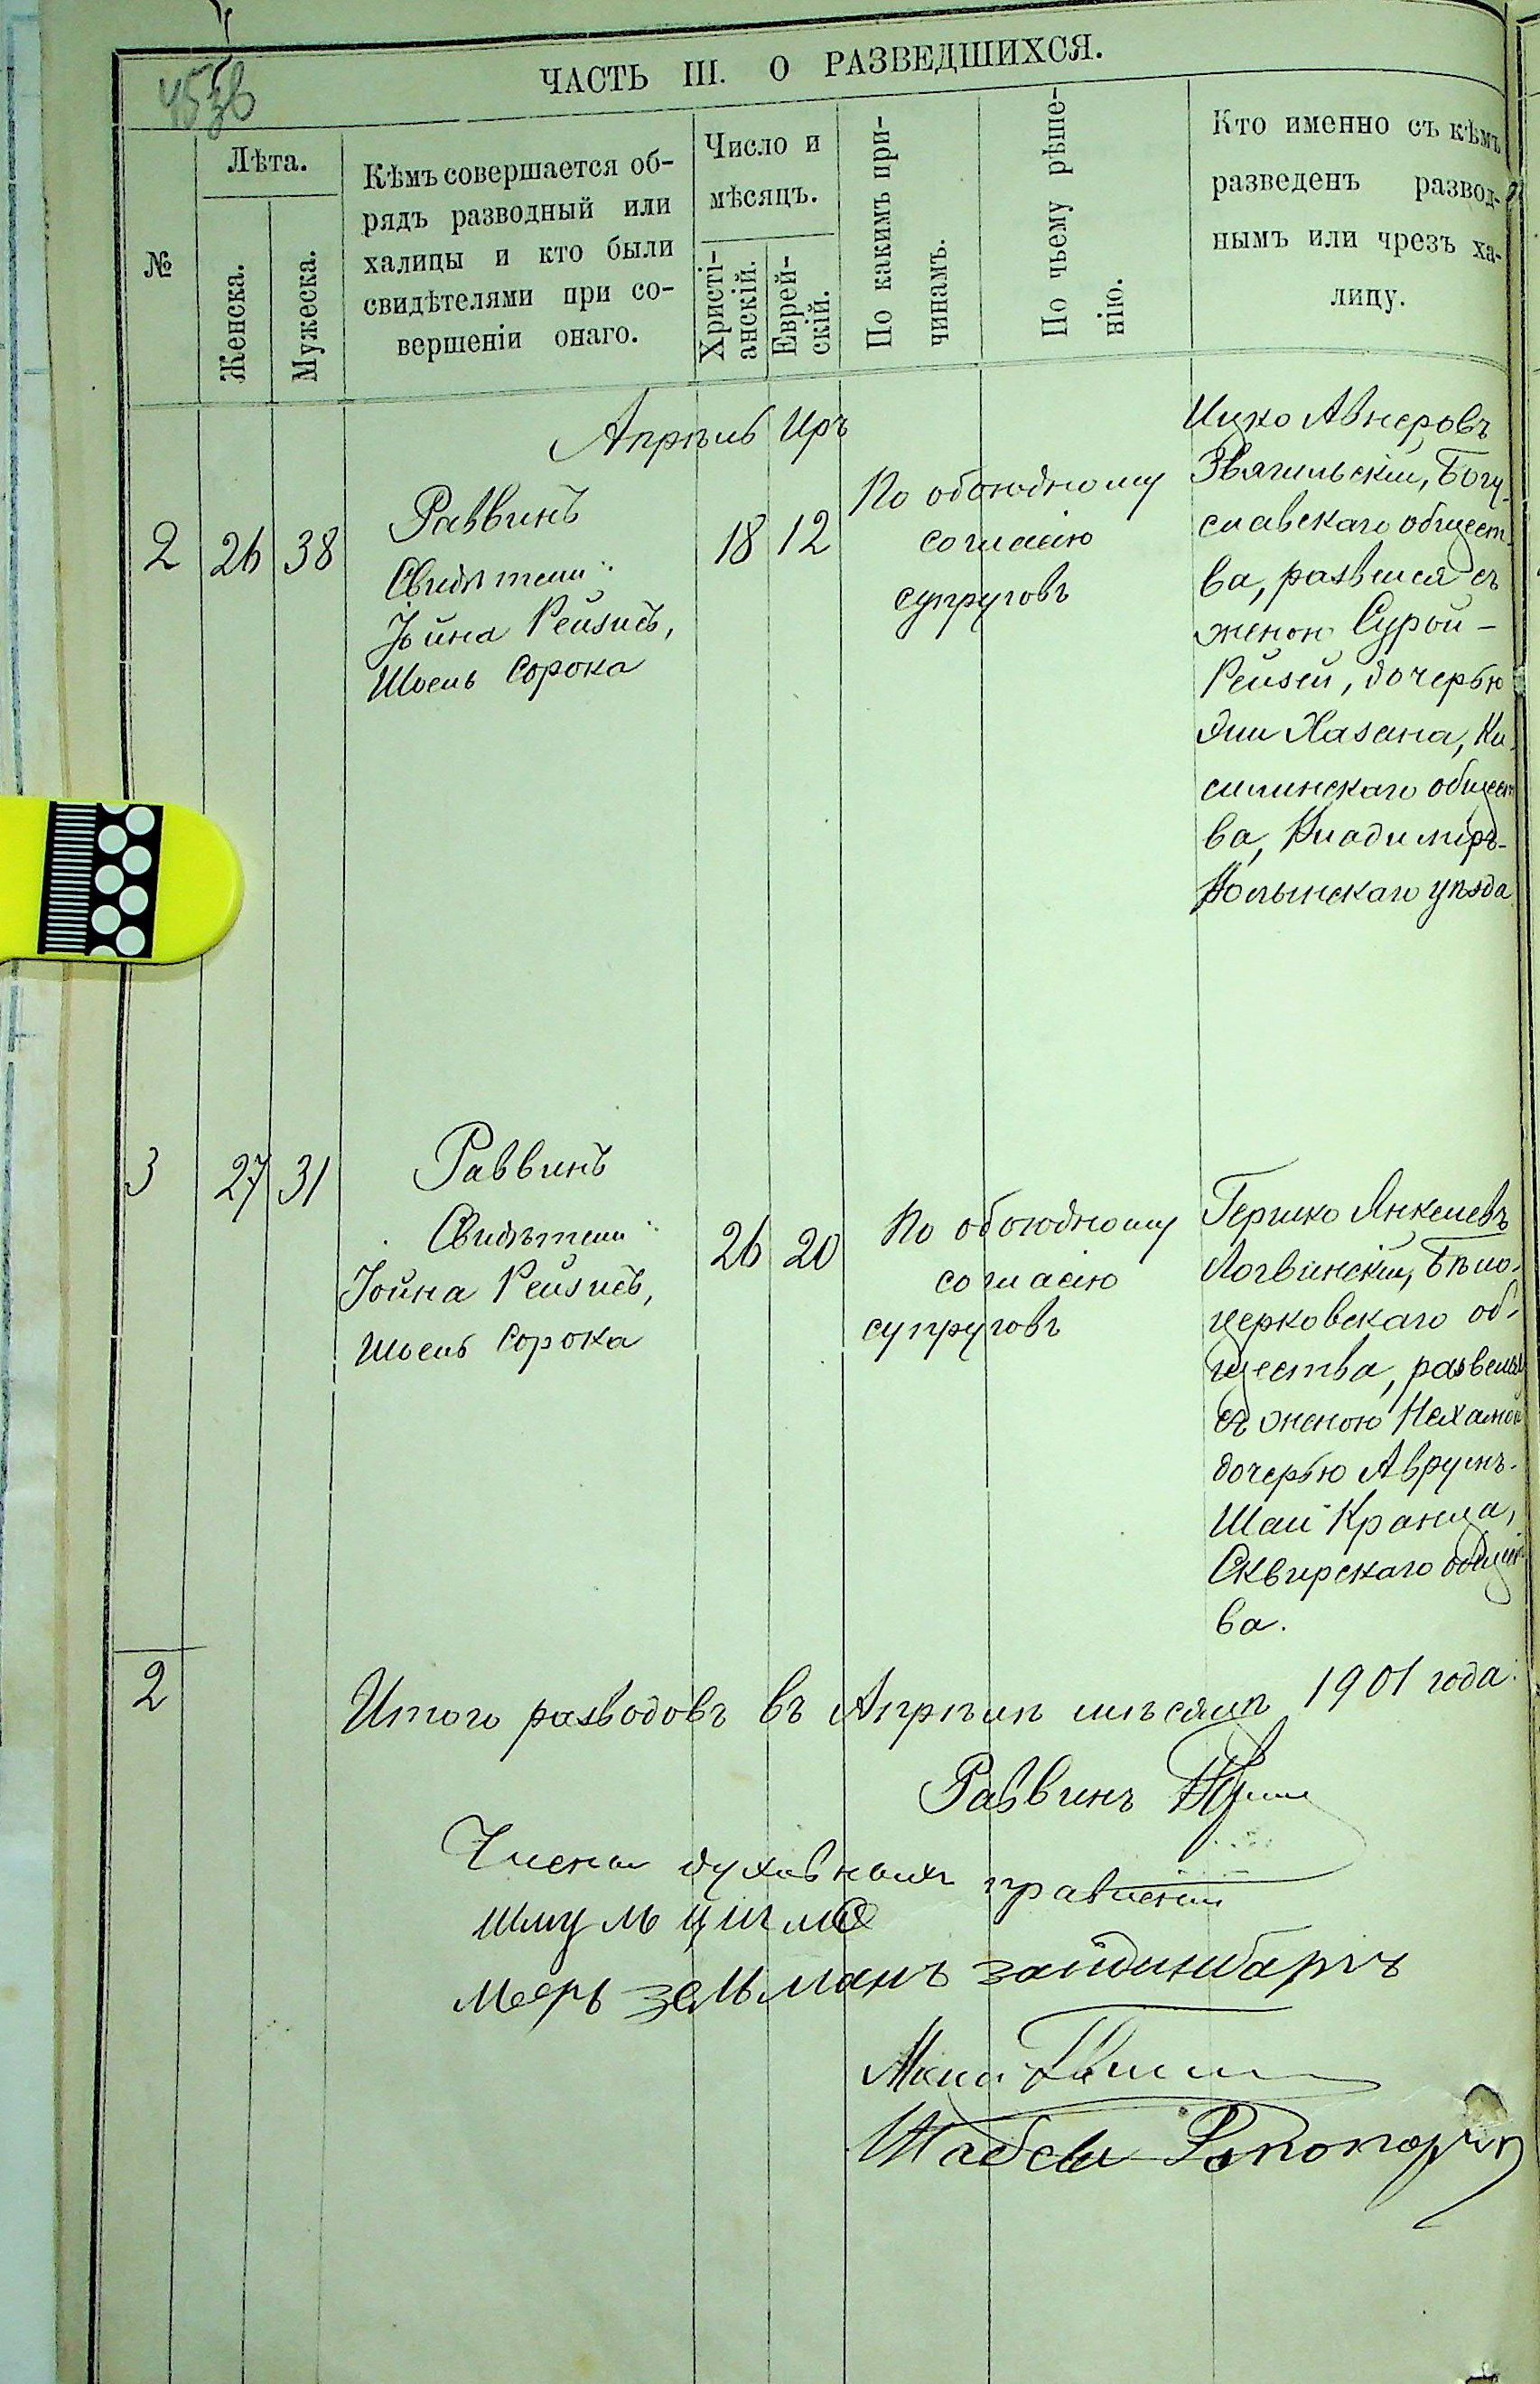 ЧАСТЬ III. О РАЗВЕДШИХСЯ.
№
Лѣта.
Женска.
Мужеска.
Кѣмъ совершается об-
рядъ разводный или
халицы и кто были
свидѣтелями при со-
вершеніи онаго.
Число и
мѣсяцъ.
Христі-
анскій.
Еврей-
скій.
По какимъ при-
чинамъ.
По чьему рѣше-
нію.
Кто именно съ кѣмъ
разведенъ развод-
нымъ или чрезъ ха-
лицу.
Апрѣль Иръ
2 26 38
Раввинъ
Свидѣтели:
Іойна Рейзисъ,
Шоель Сорока
18 12
По обоюдному
согласію
супруговъ
Ицко Авнеровъ
Звягильскій, Богу-
славскаго общест-
ва, развелся съ
женою Сурой-
Рейзей, дочерью
Эли Хазана, Ки-
силинскаго общест-
ва, Владиміръ-
Волынскаго уѣзда
3 27 31
Раввинъ
Свидѣтели:
Іойна Рейзисъ,
Шоель Сорока
26 20
По обоюдному
согласію
супруговъ
Гершко Янкелевъ
Логвинскій, Бѣло-
церковскаго об-
щества, развелся
съ женою Нехамой
дочерью Аврумъ-
Шаи Кранца,
Сквирскаго общест-
ва.
2
Итого разводовъ въ Апрѣлѣ мѣсяцѣ 1901 года:
Раввинъ
Члены духовныхъ правленій
Шмуль
Меерь Зельманъ